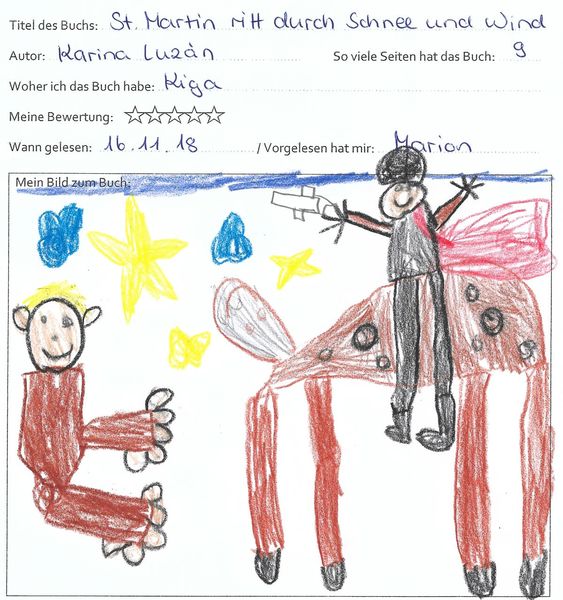 Titel des Buchs: St. Martin ritt durch Schnee und Wind
Autor: Karina Luzán So viele Seiten hat das Buch: 9
Woher ich das Buch habe: Kiga
Meine Bewertung: ☆☆☆☆☆
Wann gelesen: 16.11.18 / Vorgelesen hat mir: Marion
Mein Bild zum Buch: